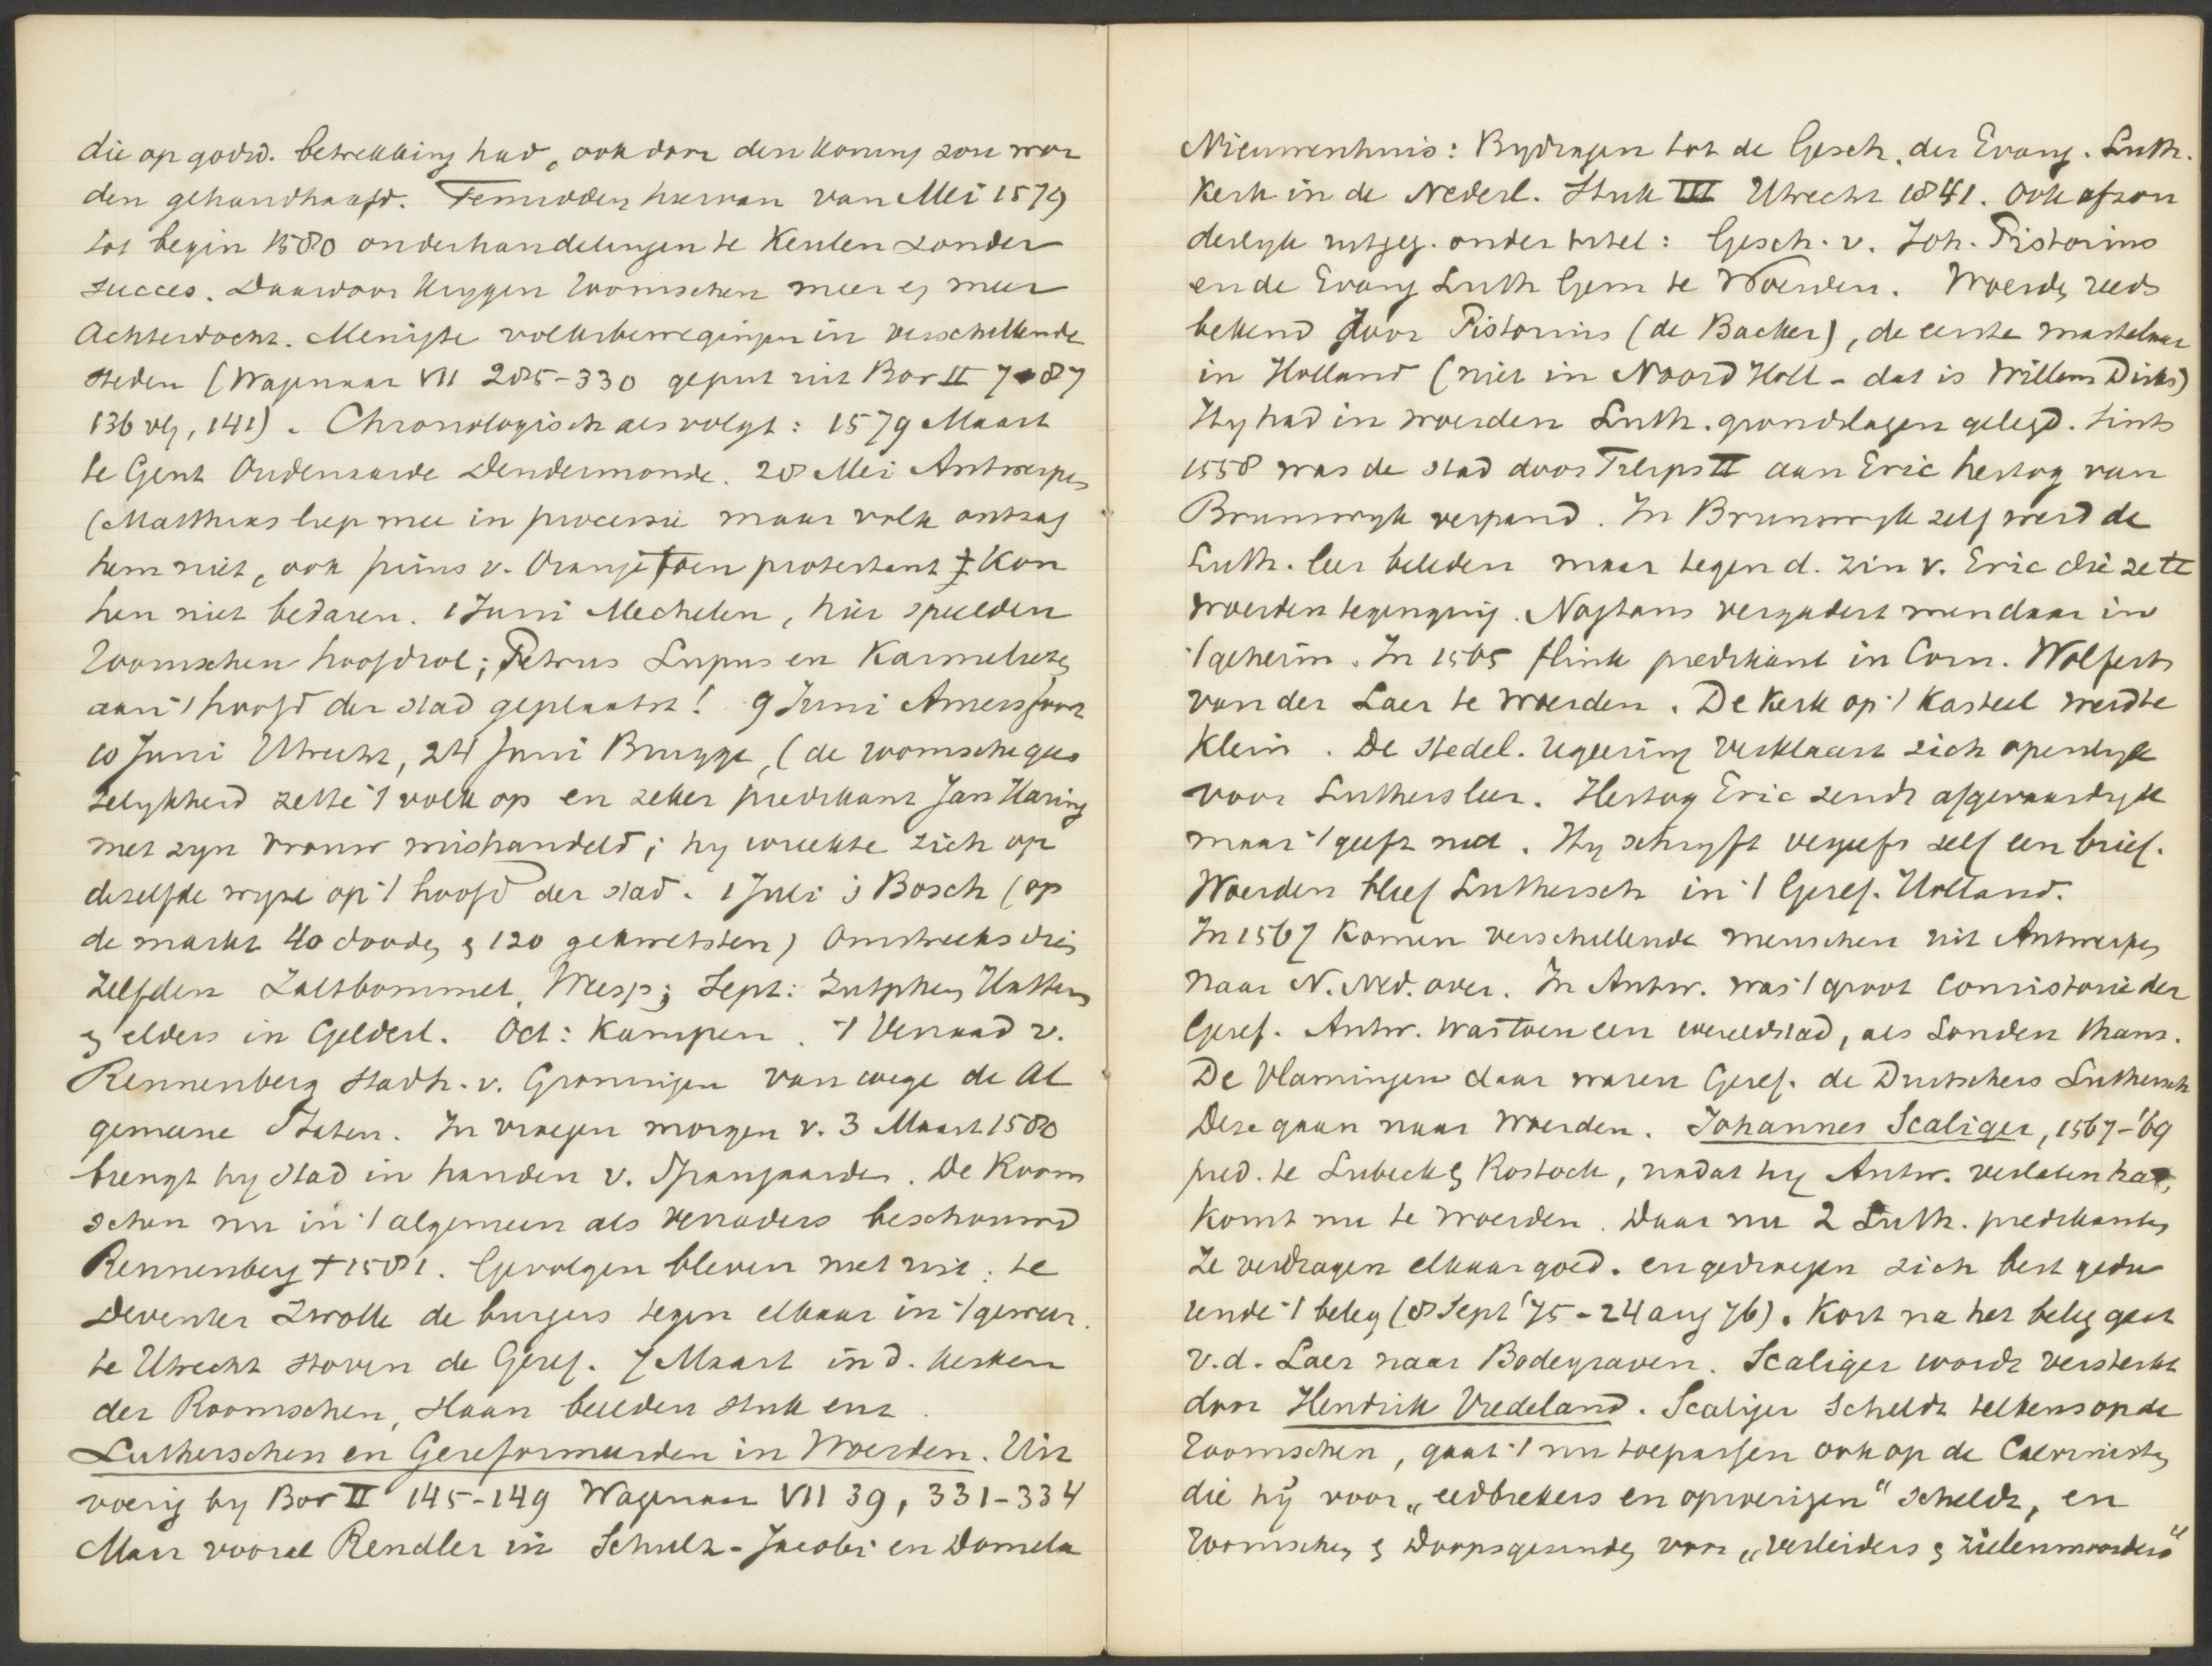 die op godsd. betrekking had, ook door den koning zou wor
den gehandhaafd. Temidden hiervan van Mei 1579
tot begin 1580 onderhandelingen te Keulen zonder
succes. Daardoor krygen Roomschen meer en meer
Achterdocht. Menigte volksbewegingen in verschillende
steden (Wagenaar VII 285-330 geput uit Bor II 7 87
136 vlg, 141). Chronologisch als volgt: 1579 Maart
te Gent Oudenaarde Dendermonde. 28 Mei Antwerpen
(Matthias liep mee in processie maar volk ontzag
hem niet, ook prins v. Oranje toen protestant kon
hen niet bedaren. 1 Juni Mechelen, hier speelden
Roomschen hoofdrol; Petrus Lupus en Karmelieten
aan 't hoofd der stad geplaatst! 9 Juni Amersfoort
10 Juni Utrecht, 24 Juni Brugge, (de roomsche gees
telykheid zette 't volk op en zeker predikant Jan Haring
met zyn vrouw mishandeld; hy wreekte zich op
dezelfde wyze op 't hoofd der stad. 1 Juli 's Bosch (op
de markt 40 dooden & 120 gekwetsten) Omstreeks die
zelfden Zaltbommel, Weesp; Sept: Zutphen Hattem
& elders in Gelderl. Oct: Kampen. 't Verraad v.
Rennenberg stadh. v. Groningen van wege de Al
gemeene Staten. In vroegen morgen v. 3 Maart 1580
brengt hy stad in handen v. Spanjaarden. De Room
schen nu in 't algemeen als verraders beschouwd
Rennenberg † 1581. Gevolgen bleven niet uit: te
Deventer Zwolle de burgers tegen elkaar in 't geweer.
te Utrecht stoven de Geref. 7 Maart in d. kerken
der Roomschen, slaan beelden stuk enz.
Lutherschen en Gereformeerden in Woerden. Uit
voerig by Bor II 145-149 Wagenaar VII 39, 331-334
Maar vooral Rendler in Schulz-Jacobi en Domela
Nieuwenhuis: Bydragen tot de Gesch. der Evang. Luth.
Kerk in de Nederl. Stuk III Utrecht 1841. Ook afzon
derlyk uitgeg. onder titel: Gesch. v. Joh. Pistorius
en de Evang Luth Gem te Woerden. Woerden reeds
bekend door Pistorius (de Backer), de eerste martelaar
in Holland (niet in Noord Holl - dat is Willem Dirks)
Hy had in Woerden Luth. grondslagen gelegd. Sints
1558 was de stad door Filips II aan Eric hertog van
Brunswyk verpand. In Brunswyk zelf werd de
Luth. leer beleden maar tegen d. zin v. Eric die zette
Woerden tegenging. Nogtans vergadert men daar in
't geheim. In 1565 flink predikant in Corn. Wolferts
van der Laer te Woerden. De kerk op 't Kasteel werd te
klein. De stedel. regeering verklaart zich openlyk
voor Luthers leer. Hertog Eric zendt afgevaardigde
maar 't geeft niet. Hy schryft vergeefs zelf een brief.
Woerden bleef Luthersch in 't Geref. Holland.
In 1567 komen verschillende menschen uit Antwerpen
naar N. Ned. over. In Antw. was 't groot Consistorie der
Geref. Antw. was toen een wereldstad, als Londen thans.
De Vlamingen daar waren Geref. de Duitschers Luthersch
Deze gaan naar Woerden. Johannes Scaliger, 1567-'69
pred. te Lubeck & Rostock, nadat hy Antw. verlaten had,
komt nu te Woerden. Daar nu 2 Luth. predikanten
Ze verdragen elkaar goed. en gedragen zich best gedu
rende 't beleg (8 Sept '75 - 24 aug 76). Kort na het beleg gaat
v.d. Laer naar Bodegraven. Scaliger wordt versterkt
door Hendrik Vredeland. Scaliger scheldt telkens op de
Roomschen, gaat 't nu toepassen ook op de Calvinisten
die hij voor „eedbrekers en oproerigen" scheldt, en
Roomschen & Doopsgezinden voor „verleiders & zielenmoorders"